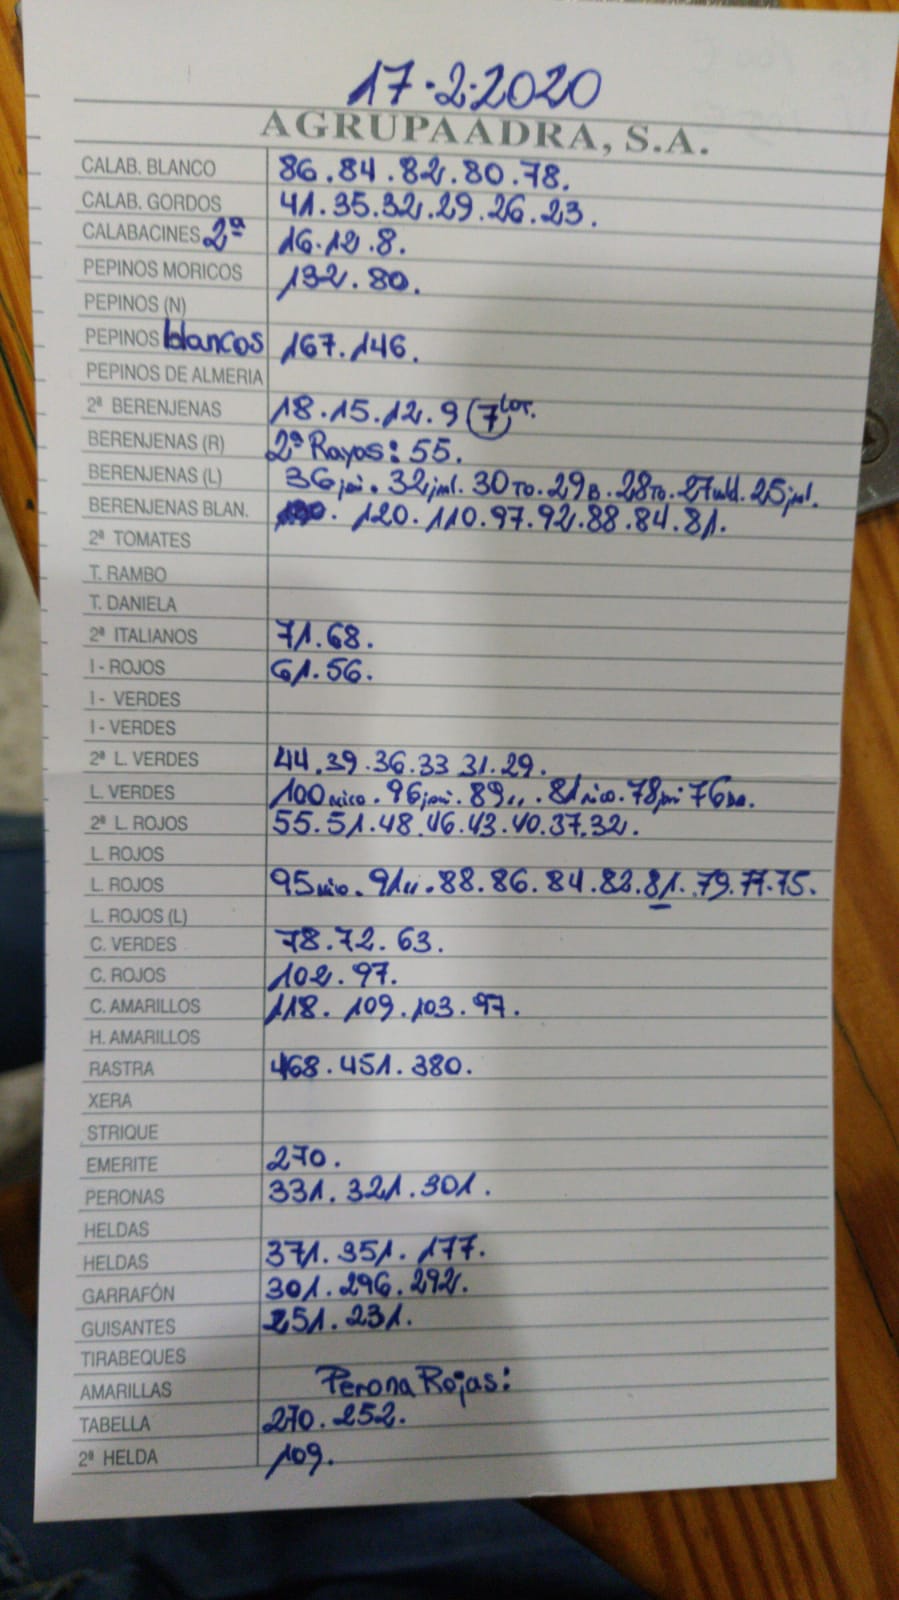 17.2.2020
AGRUPAADRA, S.A.
CALAB. BLANCO 86.84.82.80.78.
CALAB. GORDOS 41.35.32.29.26.23.
CALABACINES 2ª 16.12.8.
PEPINOS MORICOS 132.80.
PEPINOS (N)
PEPINOS blancos 167.146.
PEPINOS DE ALMERIA
2ª BERENJENAS 18.15.12.9 (7) Lot.
BERENJENAS (R) 2ª Rayas: 55.
BERENJENAS (L) 36 . 32 . 30 To. 29 B. 28 To. 27 . 25 .
BERENJENAS BLAN. 120.110.97.92.88.84.81.
2ª TOMATES
T. RAMBO
T. DANIELA
2ª ITALIANOS 71.68.
I - ROJOS 61.56.
I - VERDES
I - VERDES
2ª L. VERDES 44.39.36.33 31.29.
L. VERDES 100 nico. 96 . 89 ,, . 81 nico. 78 76 .
2ª L. ROJOS 55.51.48.46.43.40.37.32.
L. ROJOS
L. ROJOS 95 nico. 91 ,, . 88.86.84.82.81.79.77.75.
L. ROJOS (L)
C. VERDES 78.72.63.
C. ROJOS 102.97.
C. AMARILLOS 118.109.103.97.
H. AMARILLOS
RASTRA 468.451.380.
XERA
STRIQUE
EMERITE 270.
PERONAS 331.321.301.
HELDAS
HELDAS 371.351.177.
GARRAFÓN 301.296.292.
GUISANTES 251.231.
TIRABEQUES
AMARILLAS Perona Rojas:
TABELLA 270.252.
2ª HELDA 109.